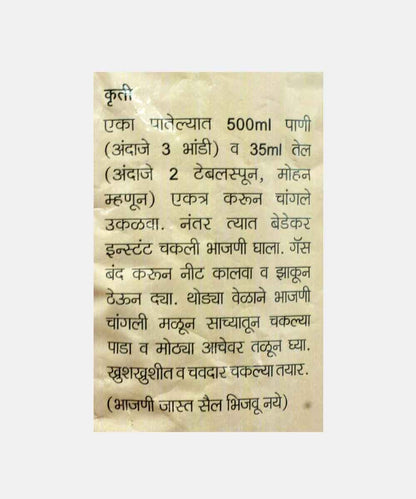 कृती
एका पातेल्यात 500ml पाणी
(अंदाजे 3 भांडी) व 35ml तेल
(अंदाजे 2 टेबलस्पून, मोहन
म्हणून) एकत्र करून चांगले
उकळवा. नंतर त्यात बेडेकर
इन्स्टंट चकली भाजणी घाला. गॅस
बंद करून नीट कालवा व झाकून
ठेऊन द्या. थोड्या वेळाने भाजणी
चांगली मळून साच्यातून चकल्या
पाडा व मोठ्या आचेवर तळून घ्या.
खुशखुशीत व चवदार चकल्या तयार.
(भाजणी जास्त सैल भिजवू नये)